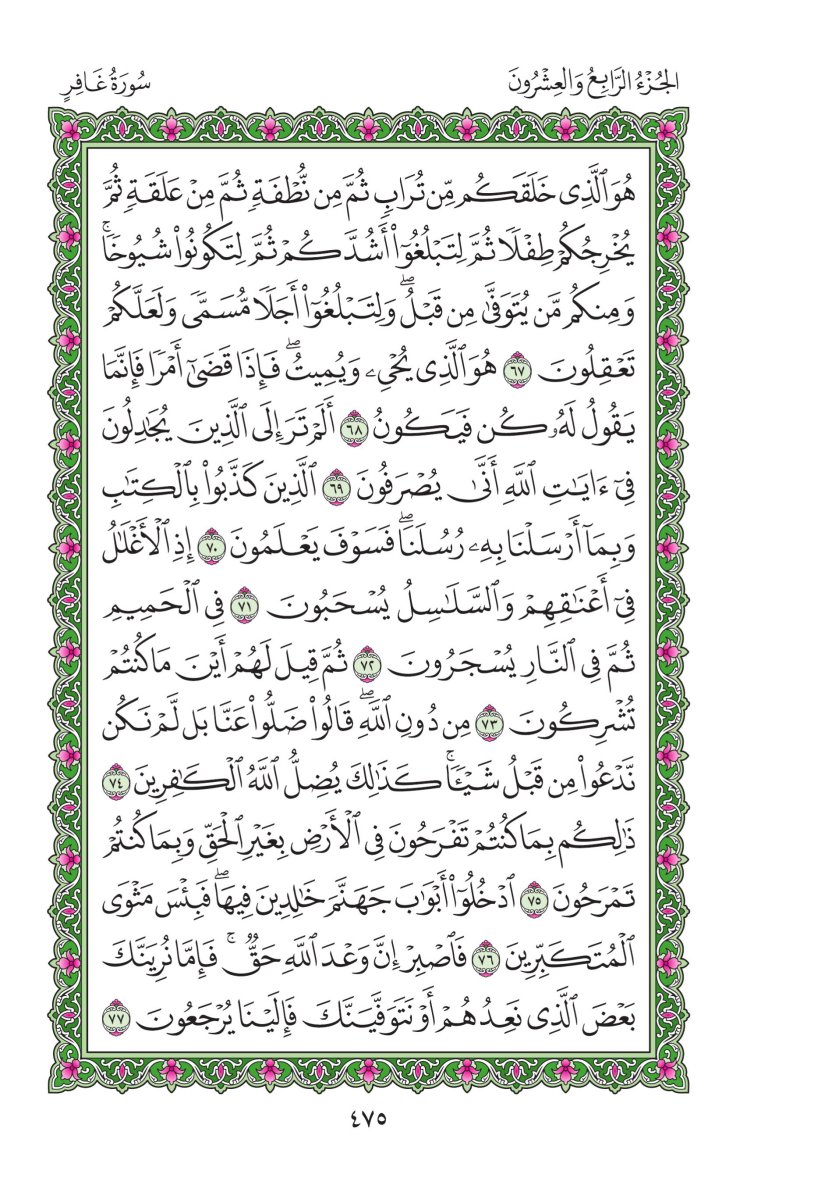 الجُزْءُ الرَّابِعُ وَالعِشْرُونَ
سُورَةُ غَافِرٍ
هُوَ ٱلَّذِى خَلَقَكُم مِّن تُرَابٖ ثُمَّ مِن نُّطۡفَةٖ ثُمَّ مِنۡ عَلَقَةٖ ثُمَّ
يُخۡرِجُكُمۡ طِفۡلٗا ثُمَّ لِتَبۡلُغُوٓاْ أَشُدَّكُمۡ ثُمَّ لِتَكُونُواْ شُيُوخٗاۚ
وَمِنكُم مَّن يُتَوَفَّىٰ مِن قَبۡلُۖ وَلِتَبۡلُغُوٓاْ أَجَلٗا مُّسَمّٗى وَلَعَلَّكُمۡ
تَعۡقِلُونَ ٦٧ هُوَ ٱلَّذِى يُحۡيِۦ وَيُمِيتُۖ فَإِذَا قَضَىٰٓ أَمۡرٗا فَإِنَّمَا
يَقُولُ لَهُۥ كُن فَيَكُونُ ٦٨ أَلَمۡ تَرَ إِلَى ٱلَّذِينَ يُجَٰدِلُونَ
فِىٓ ءَايَٰتِ ٱللَّهِ أَنَّىٰ يُصۡرَفُونَ ٦٩ ٱلَّذِينَ كَذَّبُواْ بِٱلۡكِتَٰبِ
وَبِمَآ أَرۡسَلۡنَا بِهِۦ رُسُلَنَاۖ فَسَوۡفَ يَعۡلَمُونَ ٧٠ إِذِ ٱلۡأَغۡلَٰلُ
فِىٓ أَعۡنَٰقِهِمۡ وَٱلسَّلَٰسِلُ يُسۡحَبُونَ ٧١ فِى ٱلۡحَمِيمِ
ثُمَّ فِى ٱلنَّارِ يُسۡجَرُونَ ٧٢ ثُمَّ قِيلَ لَهُمۡ أَيۡنَ مَا كُنتُمۡ
تُشۡرِكُونَ ٧٣ مِن دُونِ ٱللَّهِۖ قَالُواْ ضَلُّواْ عَنَّا بَل لَّمۡ نَكُن
نَّدۡعُواْ مِن قَبۡلُ شَيۡـٔٗاۚ كَذَٰلِكَ يُضِلُّ ٱللَّهُ ٱلۡكَٰفِرِينَ ٧٤
ذَٰلِكُم بِمَا كُنتُمۡ تَفۡرَحُونَ فِى ٱلۡأَرۡضِ بِغَيۡرِ ٱلۡحَقِّ وَبِمَا كُنتُمۡ
تَمۡرَحُونَ ٧٥ ٱدۡخُلُوٓاْ أَبۡوَٰبَ جَهَنَّمَ خَٰلِدِينَ فِيهَاۖ فَبِئۡسَ مَثۡوَى
ٱلۡمُتَكَبِّرِينَ ٧٦ فَٱصۡبِرۡ إِنَّ وَعۡدَ ٱللَّهِ حَقّٞۚ فَإِمَّا نُرِيَنَّكَ
بَعۡضَ ٱلَّذِى نَعِدُهُمۡ أَوۡ نَتَوَفَّيَنَّكَ فَإِلَيۡنَا يُرۡجَعُونَ ٧٧
٤٧٥